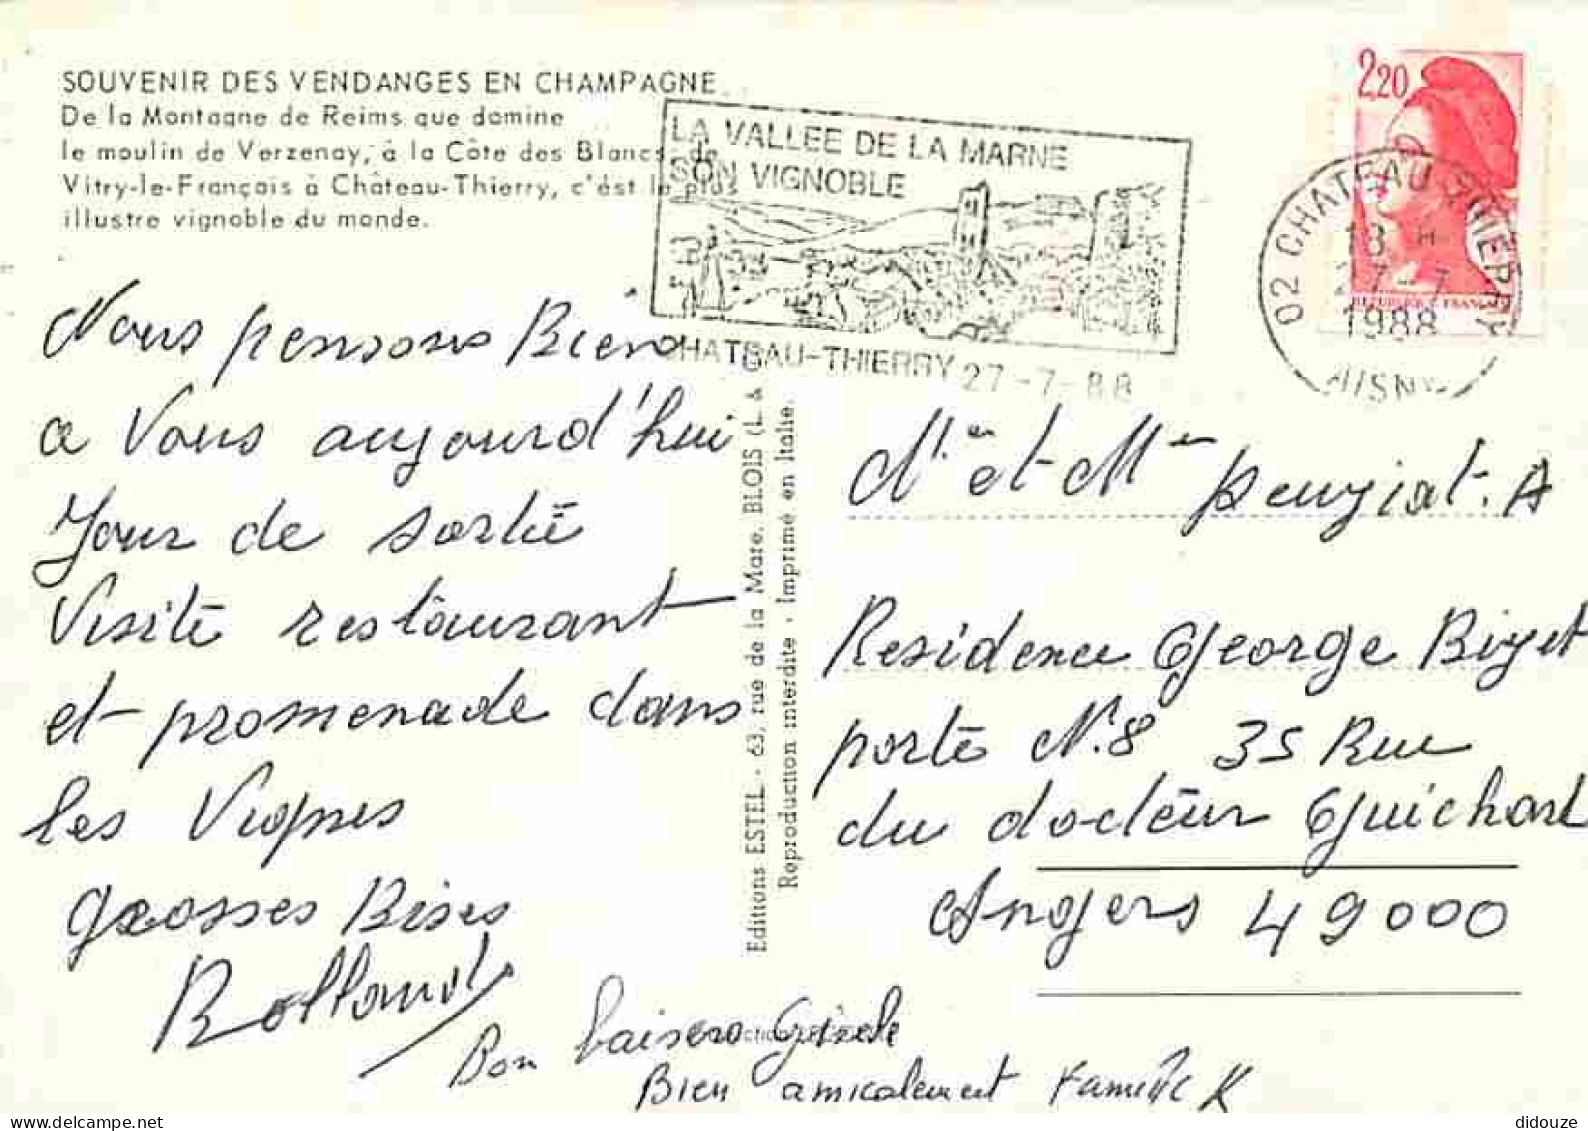 SOUVENIR DES VENDANGES EN CHAMPAGNE
De la Montagne de Reims que domine
le moulin de Verzenay, à la Côte des Blancs, de
Vitry-le-François à Château-Thierry, c'est le plus
illustre vignoble du monde.
LA VALLEE DE LA MARNE
SON VIGNOBLE
CHATEAU-THIERRY 27-7-88
2,20
REPUBLIQUE FRANCAISE
02 CHATEAU THIERRY
18 H
27-7
1988
AISNE
Nous pensons Bien
a Vous aujourd'hui
Jour de sortie
Visite restaurant
et promenade dans
les Vignes
grosses Bises
Rolland
Bon baisers Gisele
Bien amicalement Famille K
Editions ESTEL - 63, rue de la Mare, BLOIS (L. & C
Reproduction interdite - Imprimé en Italie.
Mr et Mme Peugiat. A
Residence George Bizet
porte N.8 35 Rue
du docteur Guichard
Angers 49000
didouze